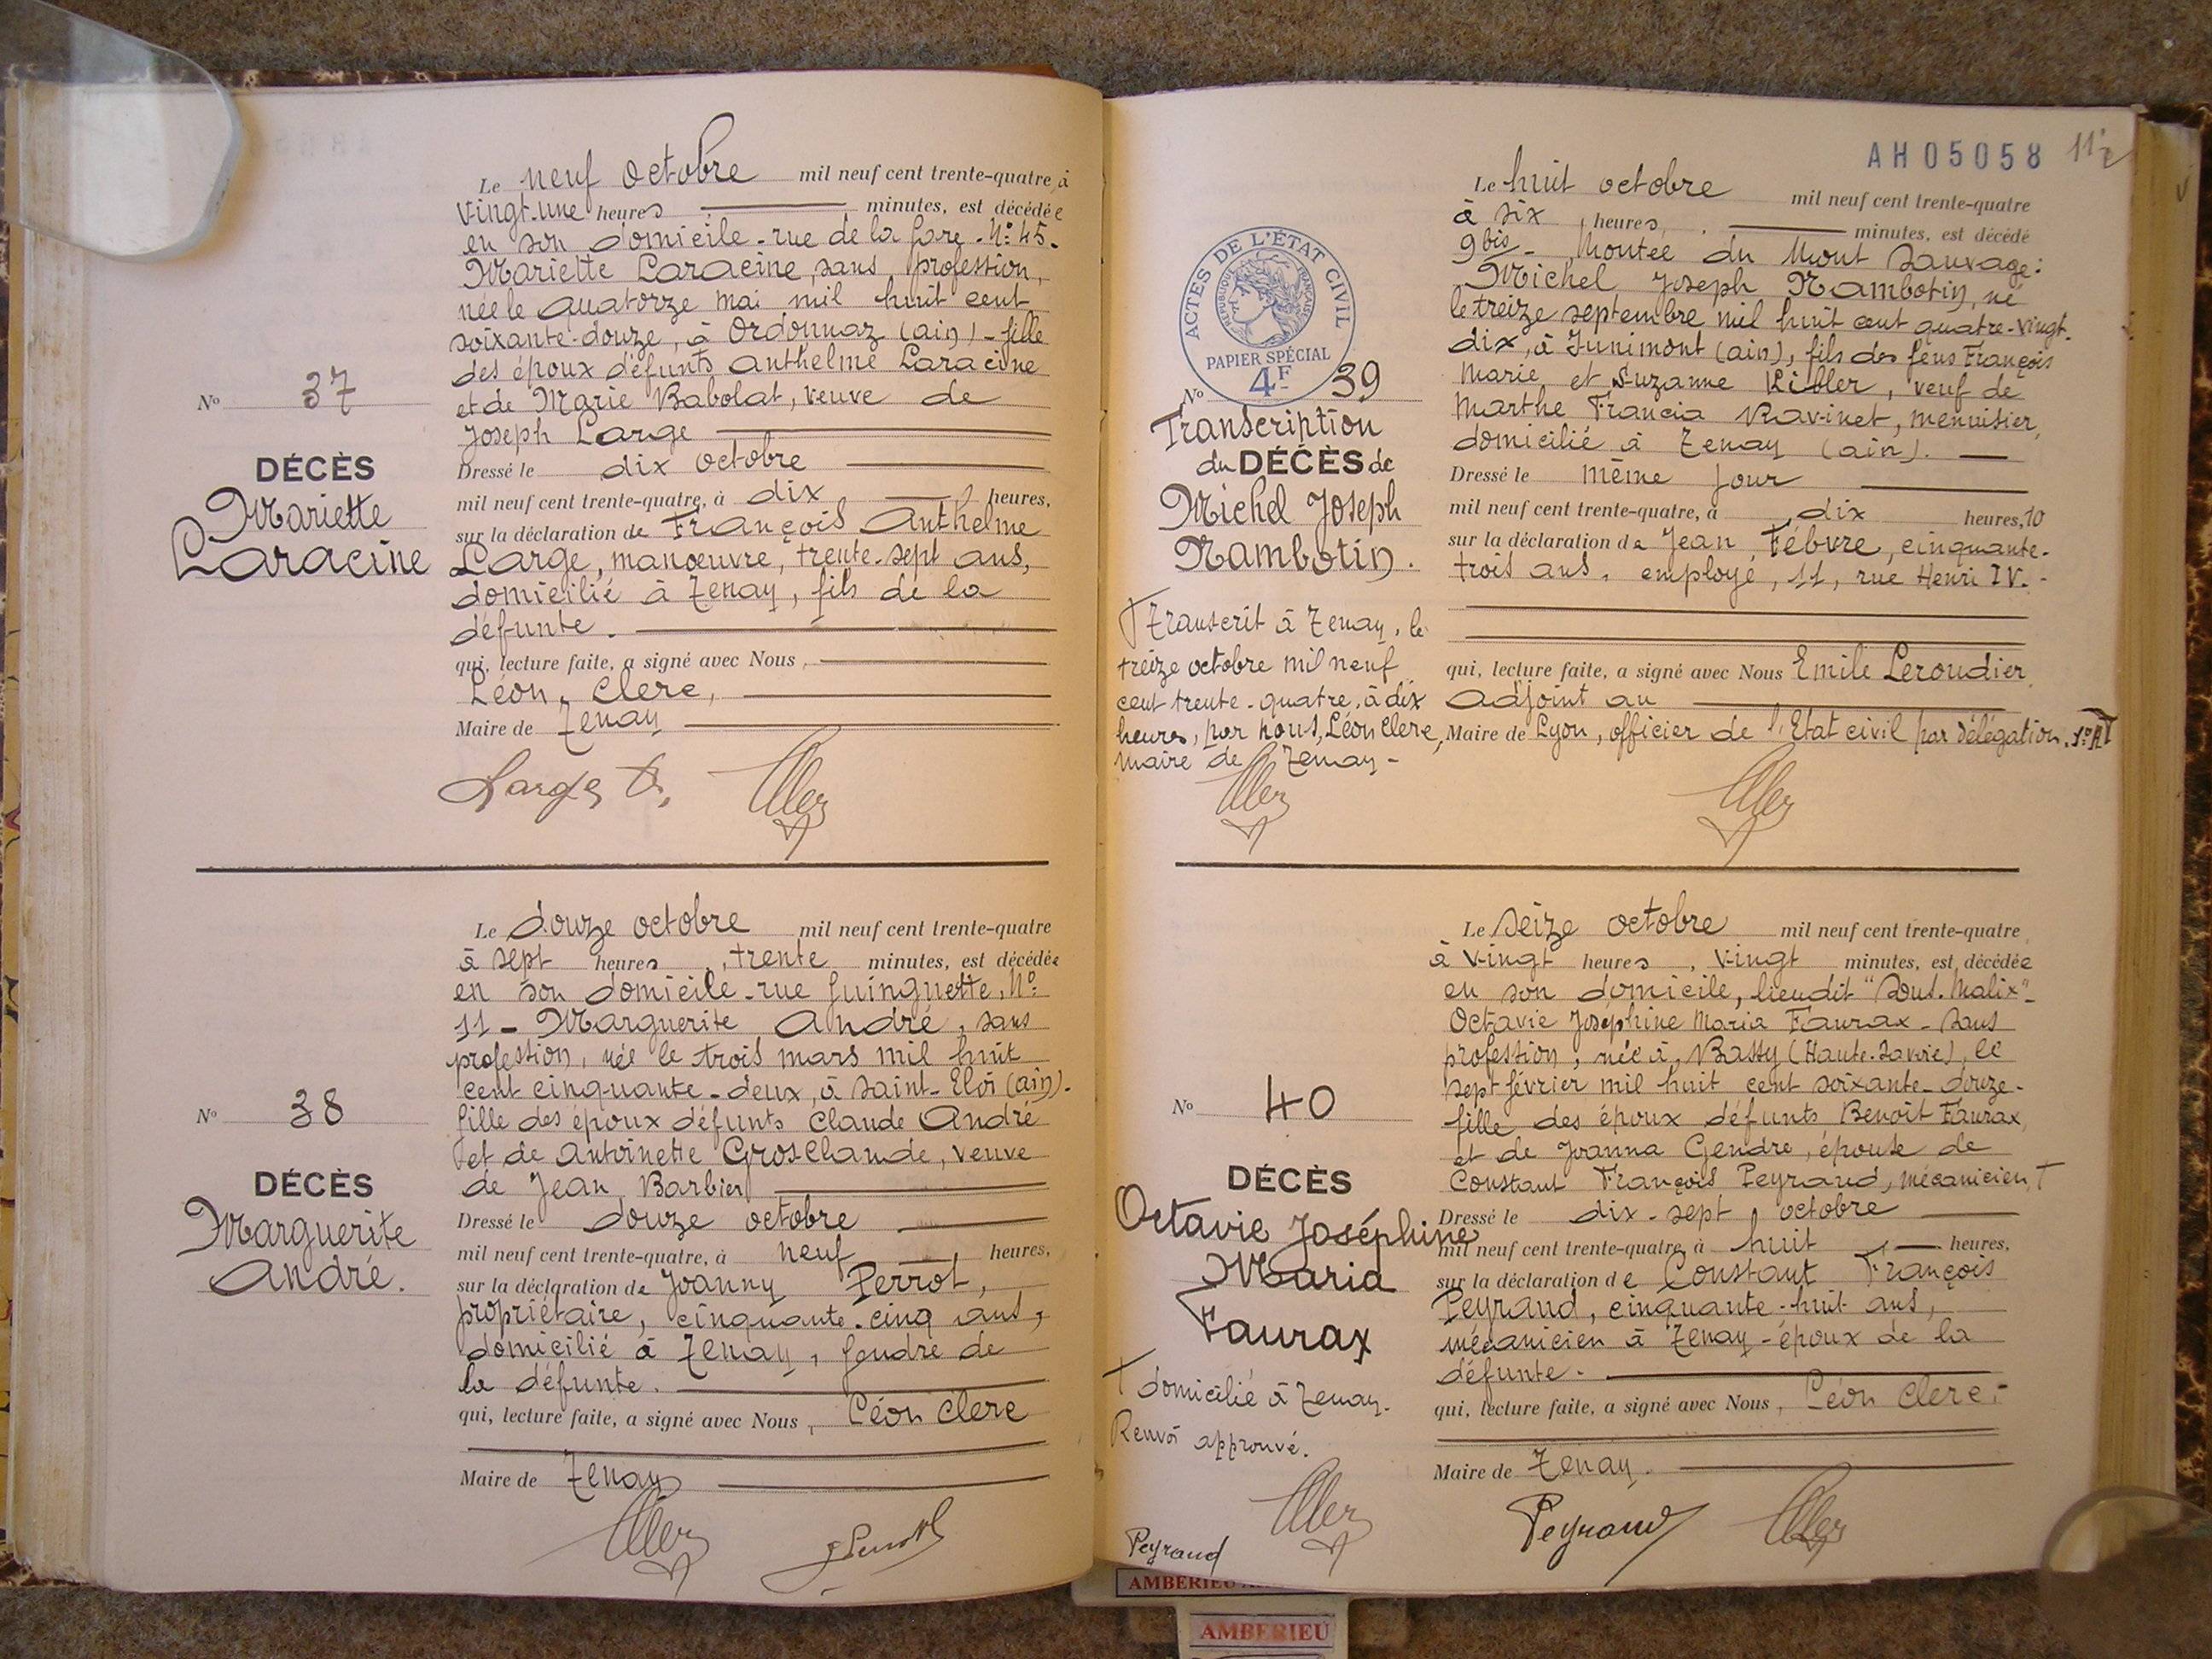 Le neuf octobre mil neuf cent trente-quatre, à
vingt-une heures minutes, est décédée
en son domicile - rue de la Gare - N° 45 -
Mariette Laracine, sans profession,
née le quatorze mai mil huit cent
soixante-douze, à Ordonnaz (ain) - fille
des époux défunts Anthelme Laracine
et de Marie Babolat, veuve de
Joseph Large
N° 37
DÉCÈS
Mariette
Laracine
Dressé le dix octobre
mil neuf cent trente-quatre, à dix heures,
sur la déclaration de François Anthelme
Large, manœuvre, trente-sept ans,
domicilié à Tenay, fils de la
défunte.
qui, lecture faite, a signé avec Nous,
Léon Clerc,
Maire de Tenay
Large
Le douze octobre mil neuf cent trente-quatre
à sept heures, trente minutes, est décédée
en son domicile - rue Guinguette, N°
11 - Marguerite André, sans
profession, née le trois mars mil huit
cent cinquante-deux, à Saint-Eloi (ain) -
fille des époux défunts Claude André
et de Antoinette Grosclaude, veuve
de Jean Barbier
N° 38
DÉCÈS
Marguerite
André.
Dressé le douze octobre
mil neuf cent trente-quatre, à neuf heures,
sur la déclaration de Joanny Perrot,
propriétaire, cinquante-cinq ans,
domicilié à Tenay, gendre de
la défunte.
qui, lecture faite, a signé avec Nous, Léon Clerc
Maire de Tenay
AH05058
Le huit octobre mil neuf cent trente-quatre
à six heures, minutes, est décédé
9 bis - Montée du Mont Sauvage:
Michel Joseph Rambotin, né
le treize septembre mil huit cent quatre-vingt-
dix, à Junimont (ain), fils des feus François
Marie et Suzanne Ribler, veuf de
Marthe Francia Ravinet, menuisier,
domicilié à Tenay (ain).
ACTES DE L'ÉTAT CIVIL
RÉPUBLIQUE FRANÇAISE
PAPIER SPÉCIAL
4F
N° 39
Transcription
du DÉCÈS de
Michel Joseph
Rambotin.
Transcrit à Tenay, le
treize octobre mil neuf
cent trente-quatre, à dix
heures, par nous, Léon Clerc,
maire de Tenay -
Dressé le même jour
mil neuf cent trente-quatre, à dix heures, 10
sur la déclaration de Jean Fébvre, cinquante-
trois ans, employé, 11, rue Henri IV. -
qui, lecture faite, a signé avec Nous Emile Leroudier
adjoint au
Maire de Lyon, officier de l'Etat civil par délégation.
Le seize octobre mil neuf cent trente-quatre
à vingt heures, vingt minutes, est décédée
en son domicile, lieudit "Sous-Malix" -
Octavie Joséphine Maria Faurax - sans
profession, née à Bassy (Haute-Savoie), le
sept février mil huit cent soixante-douze -
fille des époux défunts Benoît Faurax
et de Joanna Gendre, épouse de
Constant François Peyraud, mécanicien, †
N° 40
DÉCÈS
Octavie Joséphine
Maria
Faurax
† domicilié à Tenay.
Renvoi approuvé.
Peyraud
Dressé le dix-sept octobre
mil neuf cent trente-quatre, à huit heures,
sur la déclaration de Constant François
Peyraud, cinquante-huit ans,
mécanicien à Tenay - époux de la
défunte.
qui, lecture faite, a signé avec Nous, Léon Clerc,
Maire de Tenay.
Peyraud
AMBERIEU
AMBERIEU